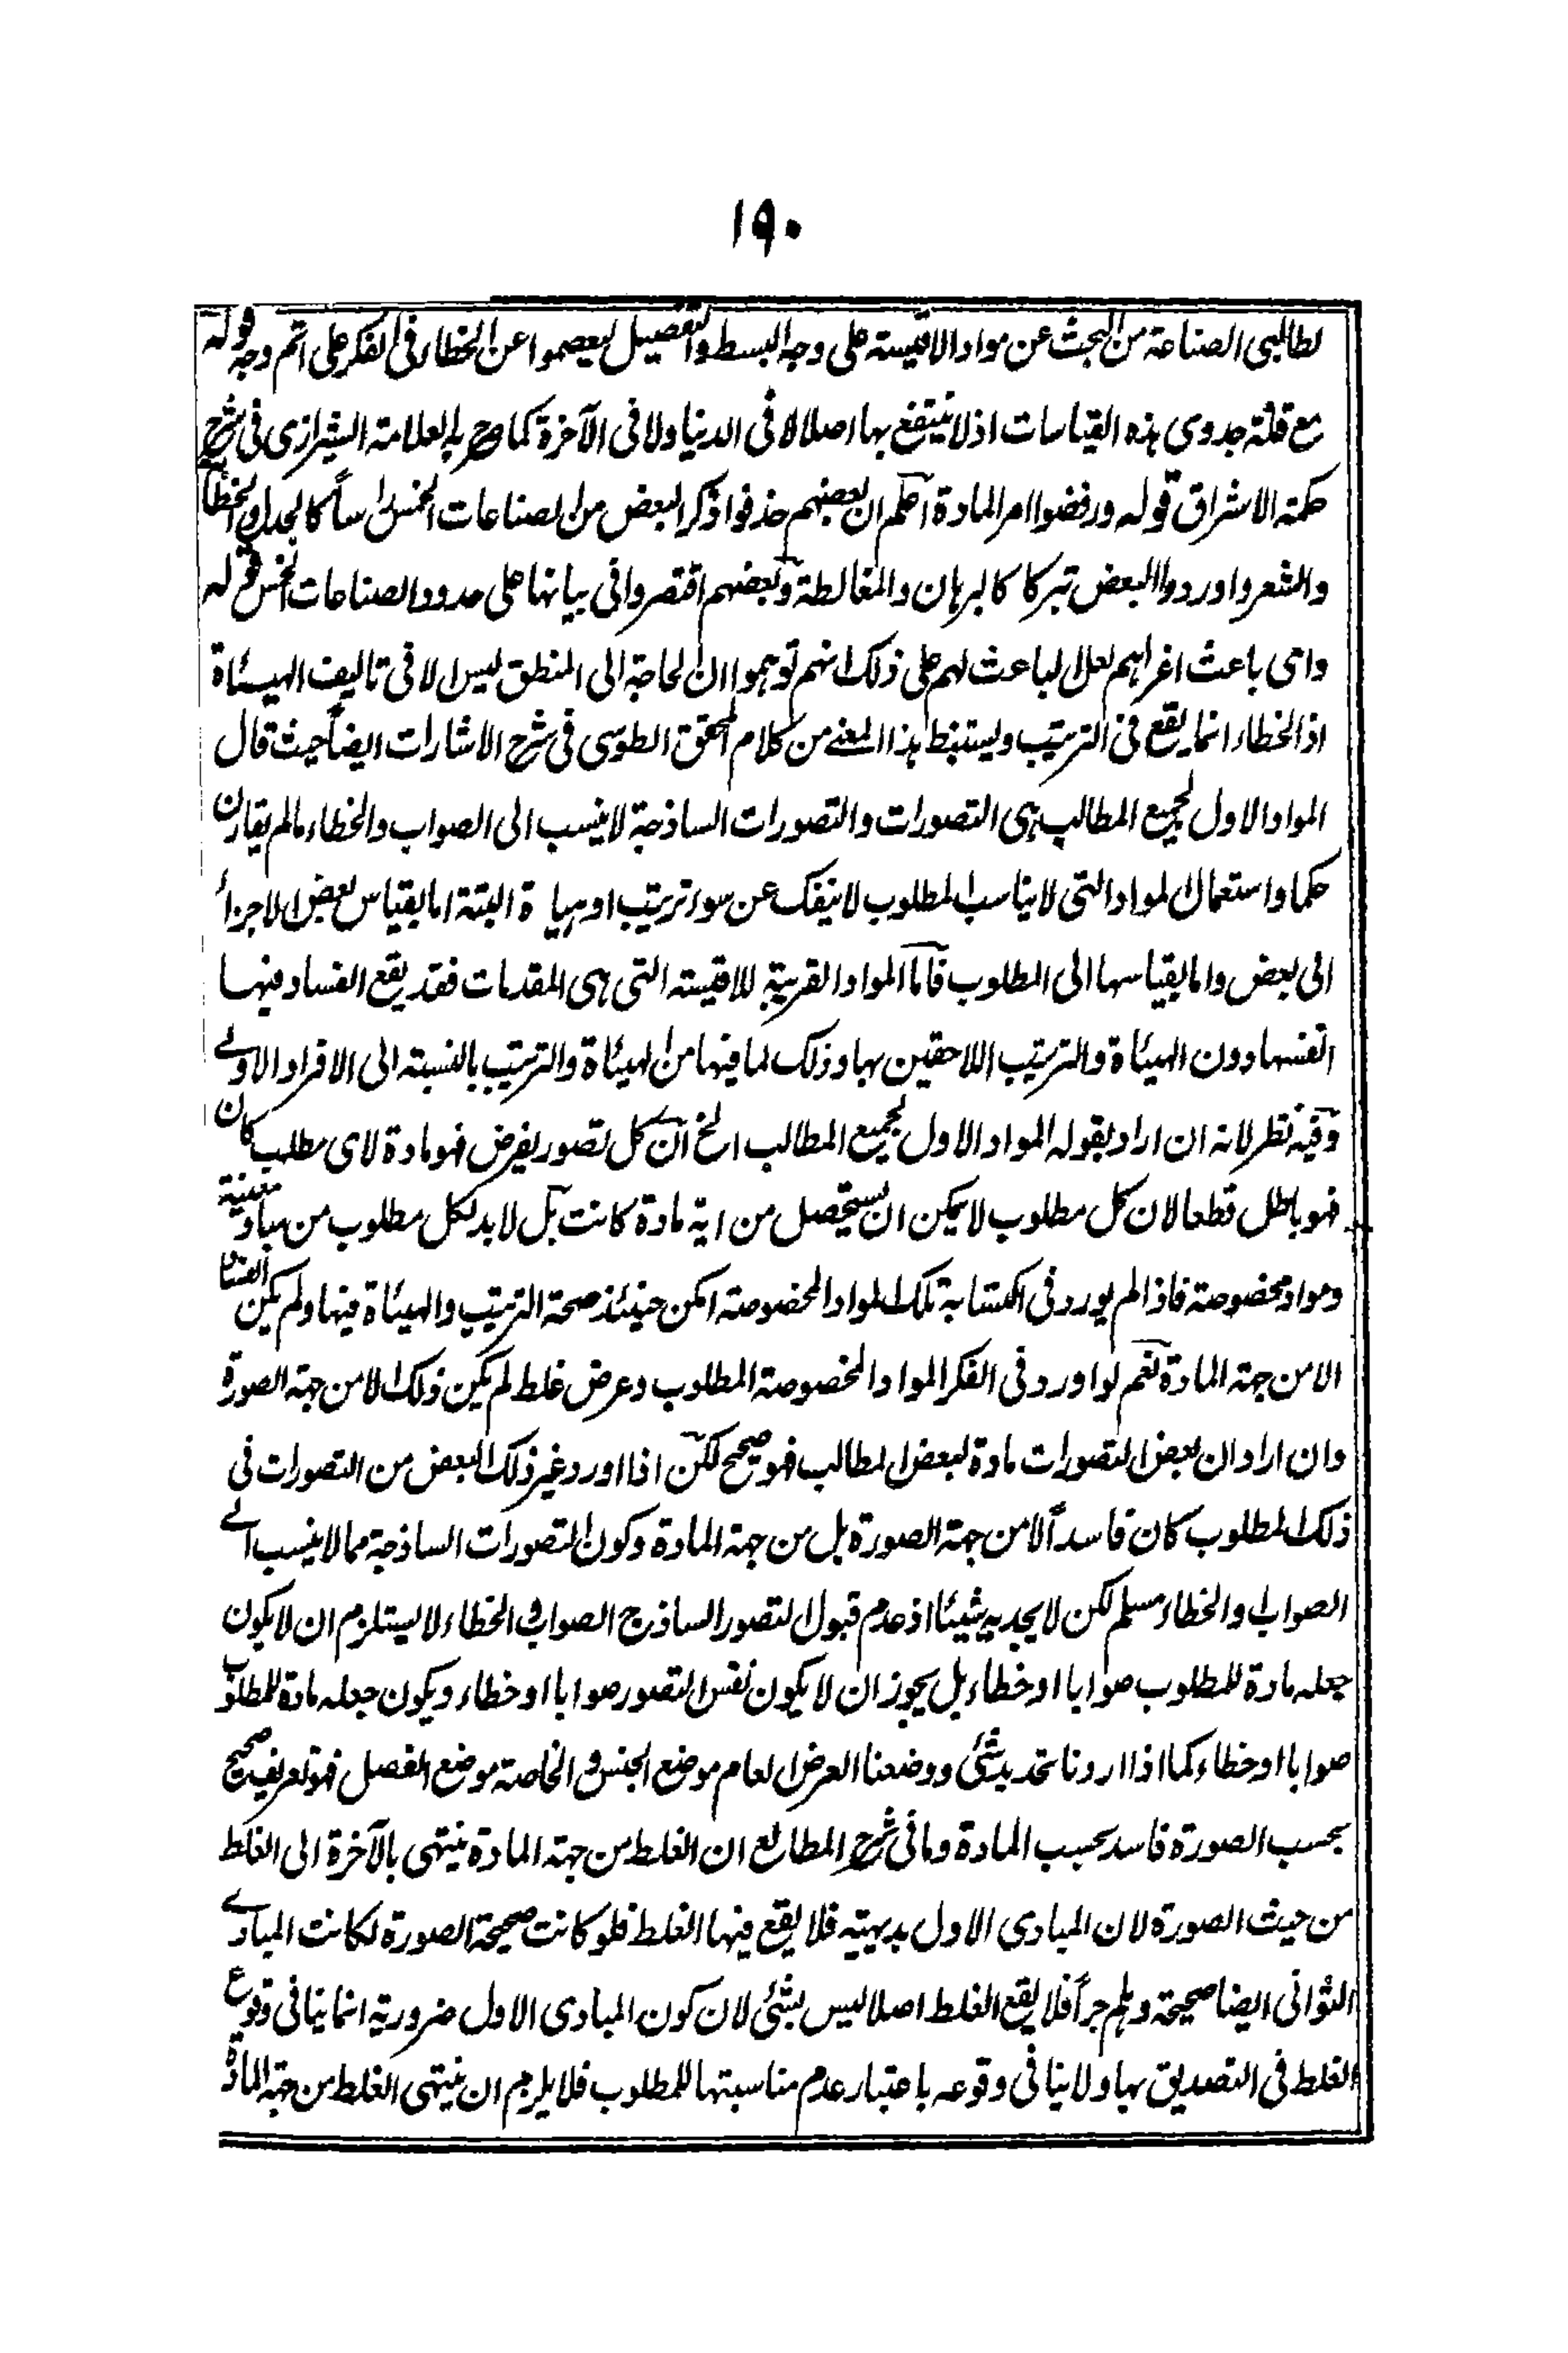 ١٩٠
لطالبى الصناعة من البحث عن مواد الاقيسة على وجه البسط والتفصيل ليعصموا عن الخطاء فى الفكر على اتم وجه قوله
مع قلة جدوى هذه القياسات اذ لا ينتفع بها اصلا لا فى الدنيا ولا فى الآخرة كما صرح به العلامة الشيرازى فى شرح
حكمة الاشراق قوله ورفضوا امر المادة اعلم ان بعضهم حذفوا ذكر البعض من الصناعات الخمس راساً كالجدل والخطابة
والشعر واوردوا البعض تبركا كالبرهان والمغالطة وبعضهم اقتصروا فى بيانها على حدود الصناعات الخمس قوله
واى باعث اغراهم لعل الباعث لهم على ذلك انهم توهموا ان الحاجة الى المنطق ليس الا فى تاليف الهيئاة
اذ الخطاء انما يقع فى الترتيب ويستنبط هذا المعنے من كلام المحقق الطوسى فى شرح الاشارات ايضاً حيث قال
المواد الاول لجميع المطالب هى التصورات والتصورات الساذجة لا ينسب الى الصواب والخطاء مالم يقارن
حكما واستعمال المواد التى لا يناسب المطلوب لا ينفك عن سوء ترتيب او هياة البتة اما بقياس بعض الاجزاء
الى بعض واما بقياسها الى المطلوب فاما المواد القريبة للاقيسة التى هى المقدمات فقد يقع الفساد فيها
انفسها دون الهيئاة والترتيب اللاحقين بها وذلك لما فيها من الهيئاة والترتيب بالنسبة الى الافراد الاولے
وفيه نظر لانه ان اراد بقوله المواد الاول لجميع المطالب الخ ان كل تصور يفرض فهو مادة لاى مطلب كان
فهو باطل قطعا لان كل مطلوب لا يمكن ان يستحصل من اية مادة كانت بل لا بد لكل مطلوب من مباد معينة
ومواد مخصوصة فاذا لم يورد فى اكتسابة تلك المواد المخصوصة امكن حينئذ صحة الترتيب والهيئاة فيها ولم يكن الفساد
الا من جهة المادة نعم لو اورد فى الفكر المواد المخصوصة المطلوب وعرض غلط لم يكن ذلك الا من جهة الصورة
وان اراد ان بعض التصورات مادة لبعض المطالب فهو صحيح لكن اذا اورد غير ذلك البعض من التصورات فى
ذلك المطلوب كان فاسداً لا من جهة الصورة بل من جهة المادة وكون التصورات الساذجة مما لا ينسب الے
الصواب والخطاء مسلم لكن لا يجديه شيئا اذ عدم قبول التصور الساذج الصواب والخطاء لا يستلزم ان لا يكون
جعله مادة للمطلوب صوابا او خطاء بل يجوز ان لا يكون نفس التصور صوابا او خطاء ويكون جعله مادة للمطلوب
صوابا او خطاء كما اذا اردنا تحديد شئ ووضعنا العرض العام موضع الجنس والخاصة موضع الفصل فهو تعريف صحيح
بحسب الصورة فاسد بحسب المادة وما فى شرح المطالع ان الغلط من جهة المادة ينتهى بالآخرة الى الغلط
من حيث الصورة لان المبادى الاول بديهية فلا يقع فيها الغلط فلو كانت صحيحة الصورة لكانت المبادے
الثوانى ايضا صحيحة وهلم جراً فلا يقع الغلط اصلا ليس بشئ لان كون المبادى الاول ضرورية انما ينافى وقوع
الغلط فى التصديق بها ولا ينافى وقوعه باعتبار عدم مناسبتها للمطلوب فلا يلزم ان ينتهى الغلط من جهة المادة